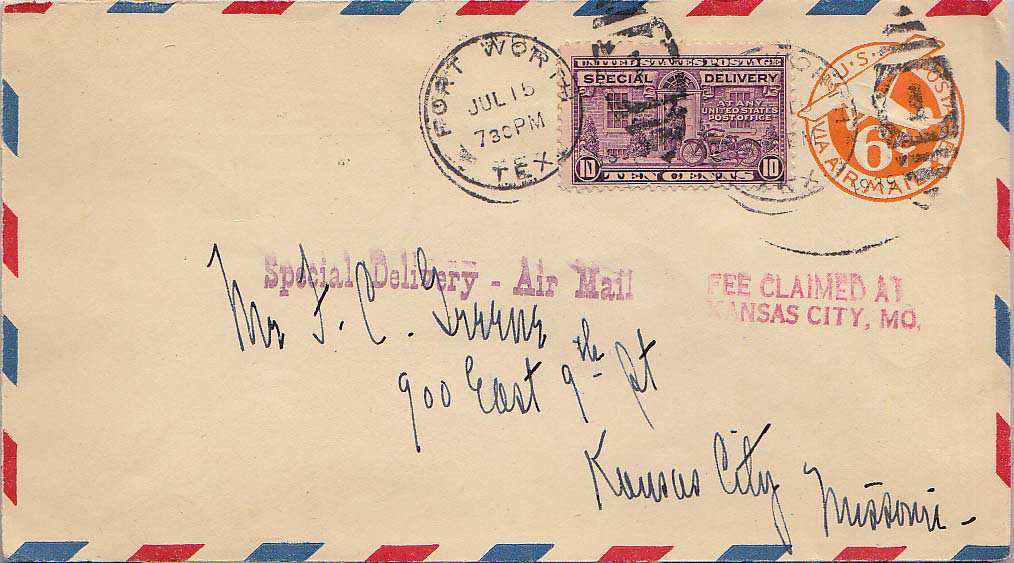 FORT WORTH
JUL 15
7 30 PM
TEX
UNITED STATES POSTAGE
SPECIAL DELIVERY
AT ANY
UNITED STATES
POST OFFICE
10 TEN CENTS 10
U·S· POSTAGE
6
VIA AIR MAIL
1939
Special Delivery - Air Mail
FEE CLAIMED AT
KANSAS CITY, MO.
Mr F. C. Greene
900 East 9th St
Kansas City
Missouri -